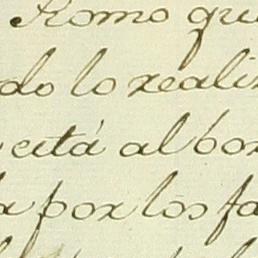 Romo que
do lo reali
está al bor
a por los fa